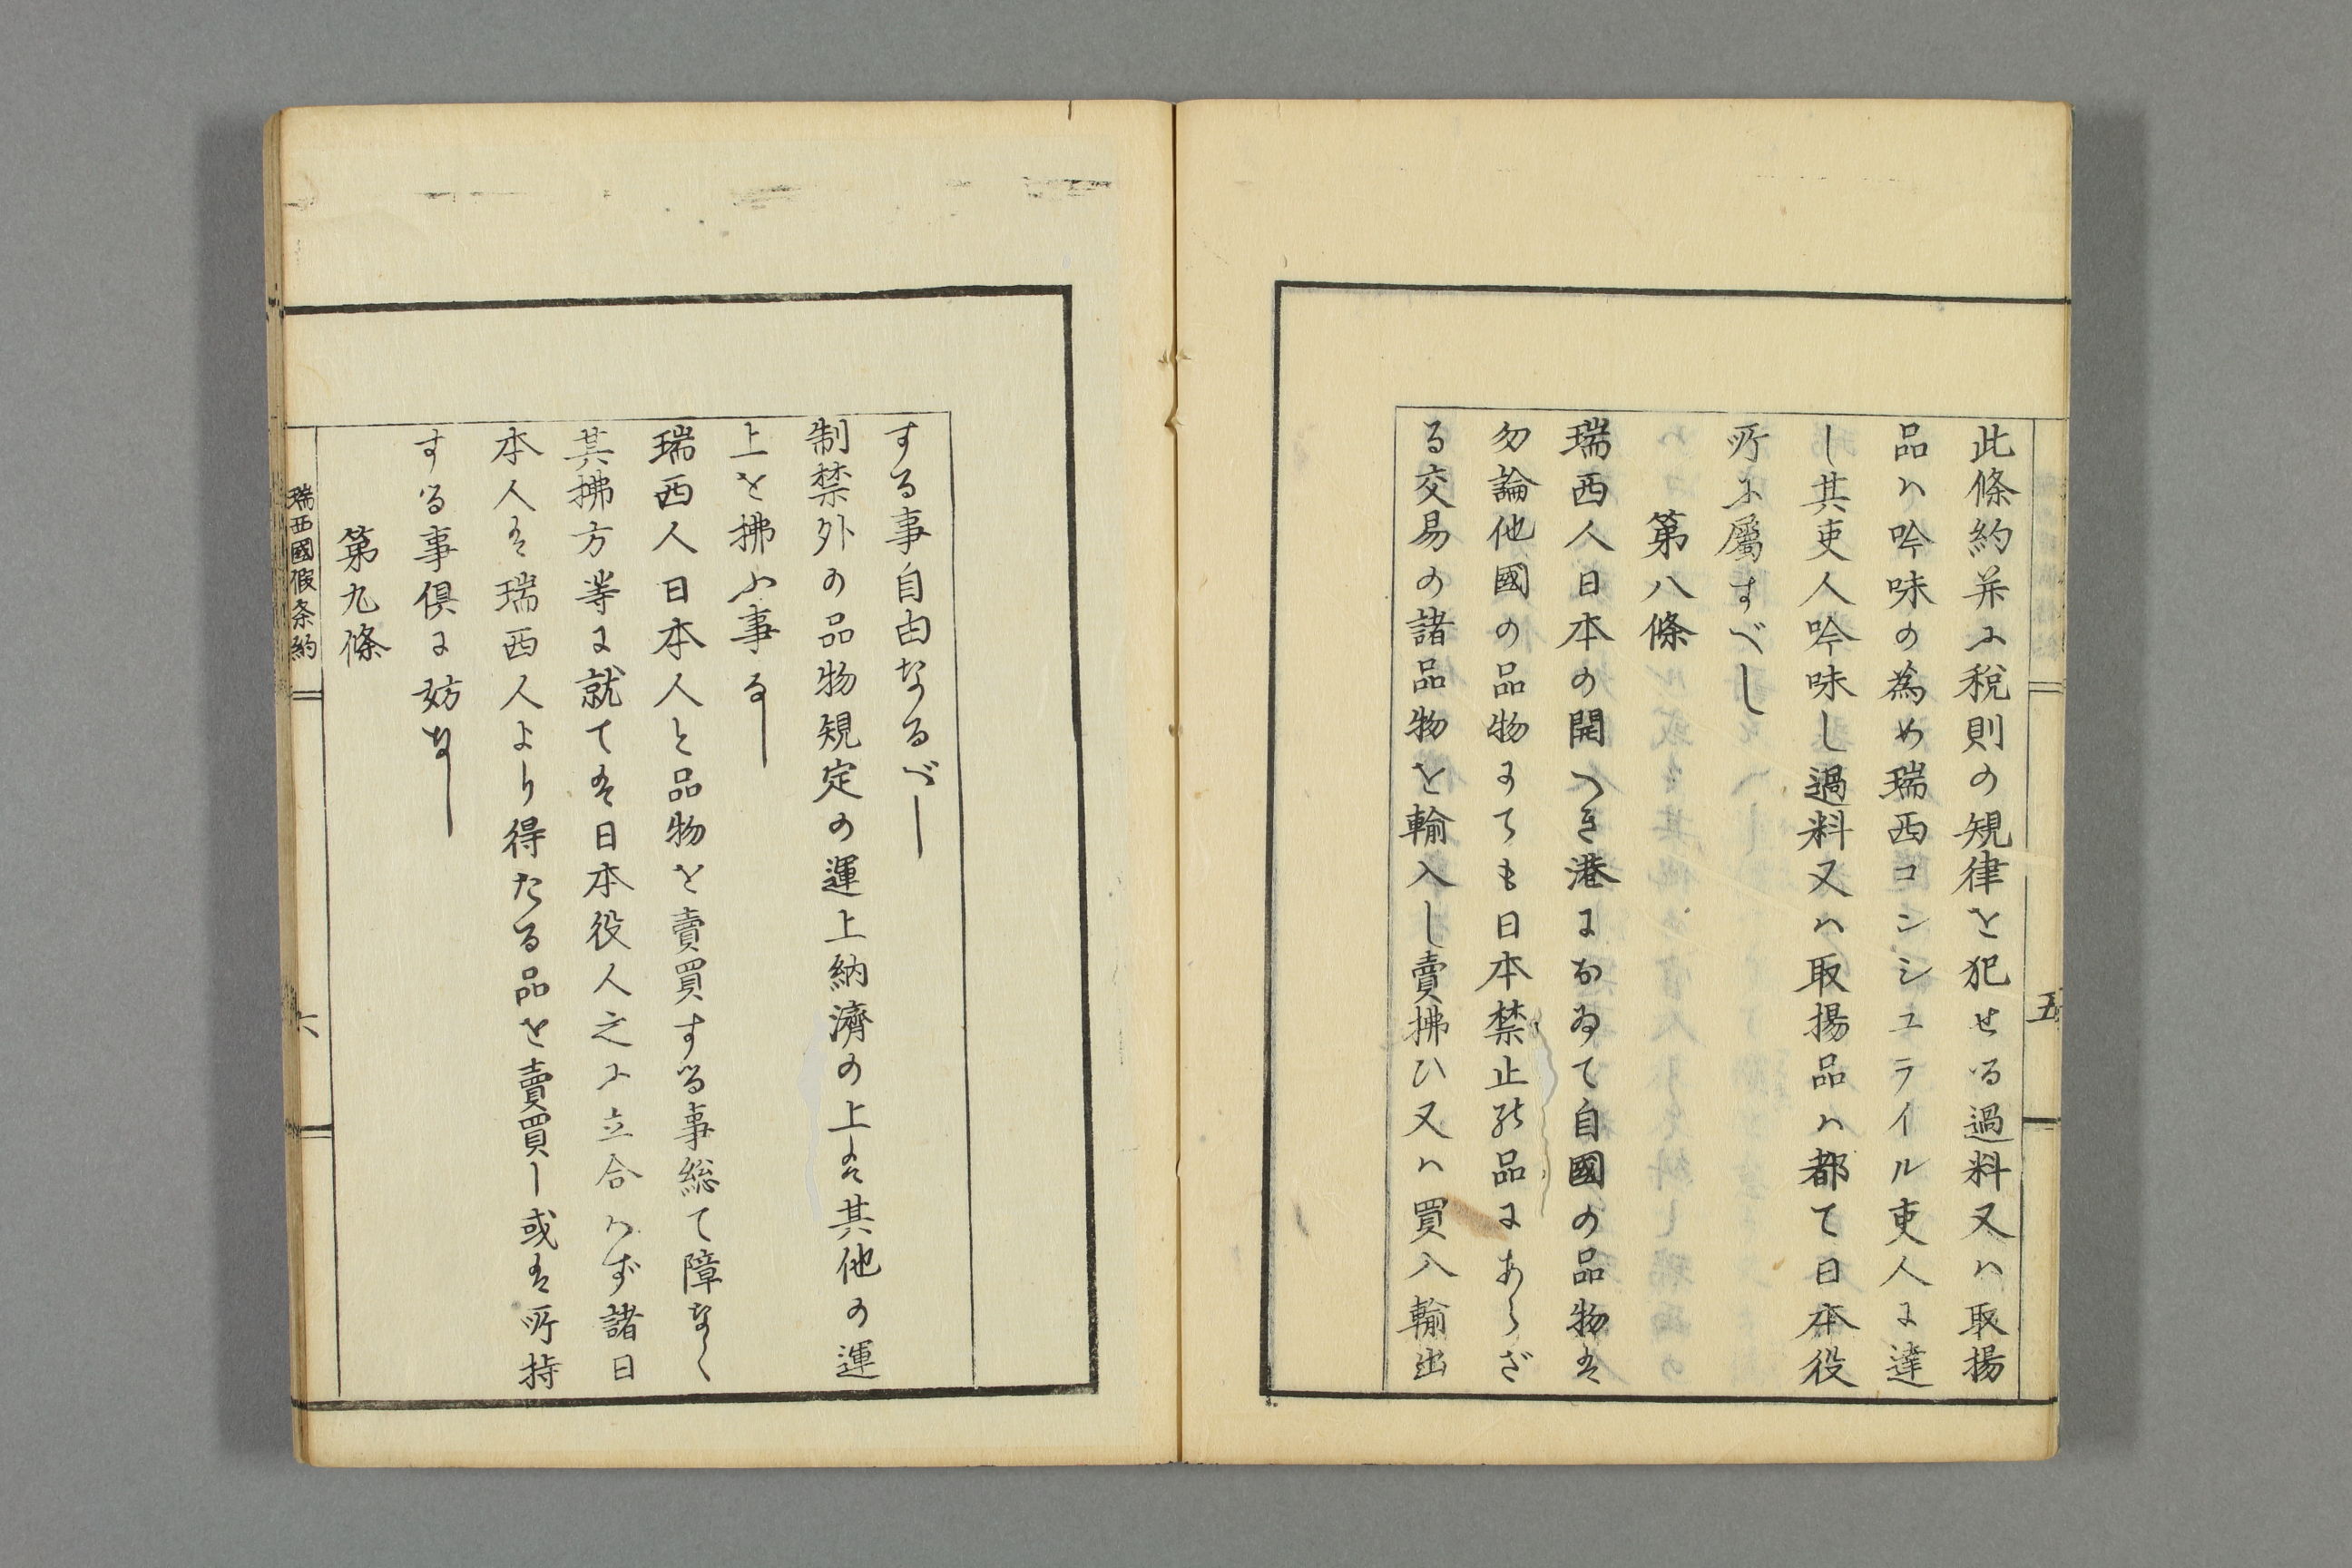 五
此條約并に税則の規律を犯せる過料又ハ取揚
品ハ吟味の為め瑞西コンシユライル吏人に達
し其吏人吟味し過料又ハ取揚品ハ都て日本役
所に屬すべし
第八條
瑞西人日本の開へき港におゐて自國の品物は
勿論他國の品物にても日本禁止の品にあらざ
る交易の諸品物を輸入し賣拂ひ又ハ買入輸出
する事自由なるべし
制禁外の品物規定の運上納濟の上は其他の運
上を拂ふ事なし
瑞西人日本人と品物を賣買する事総て障なく
其拂方等に就ては日本役人之に立合ハず諸日
本人は瑞西人より得たる品を賣買し或は所持
する事倶に妨なし
第九條
瑞西國假条約
六